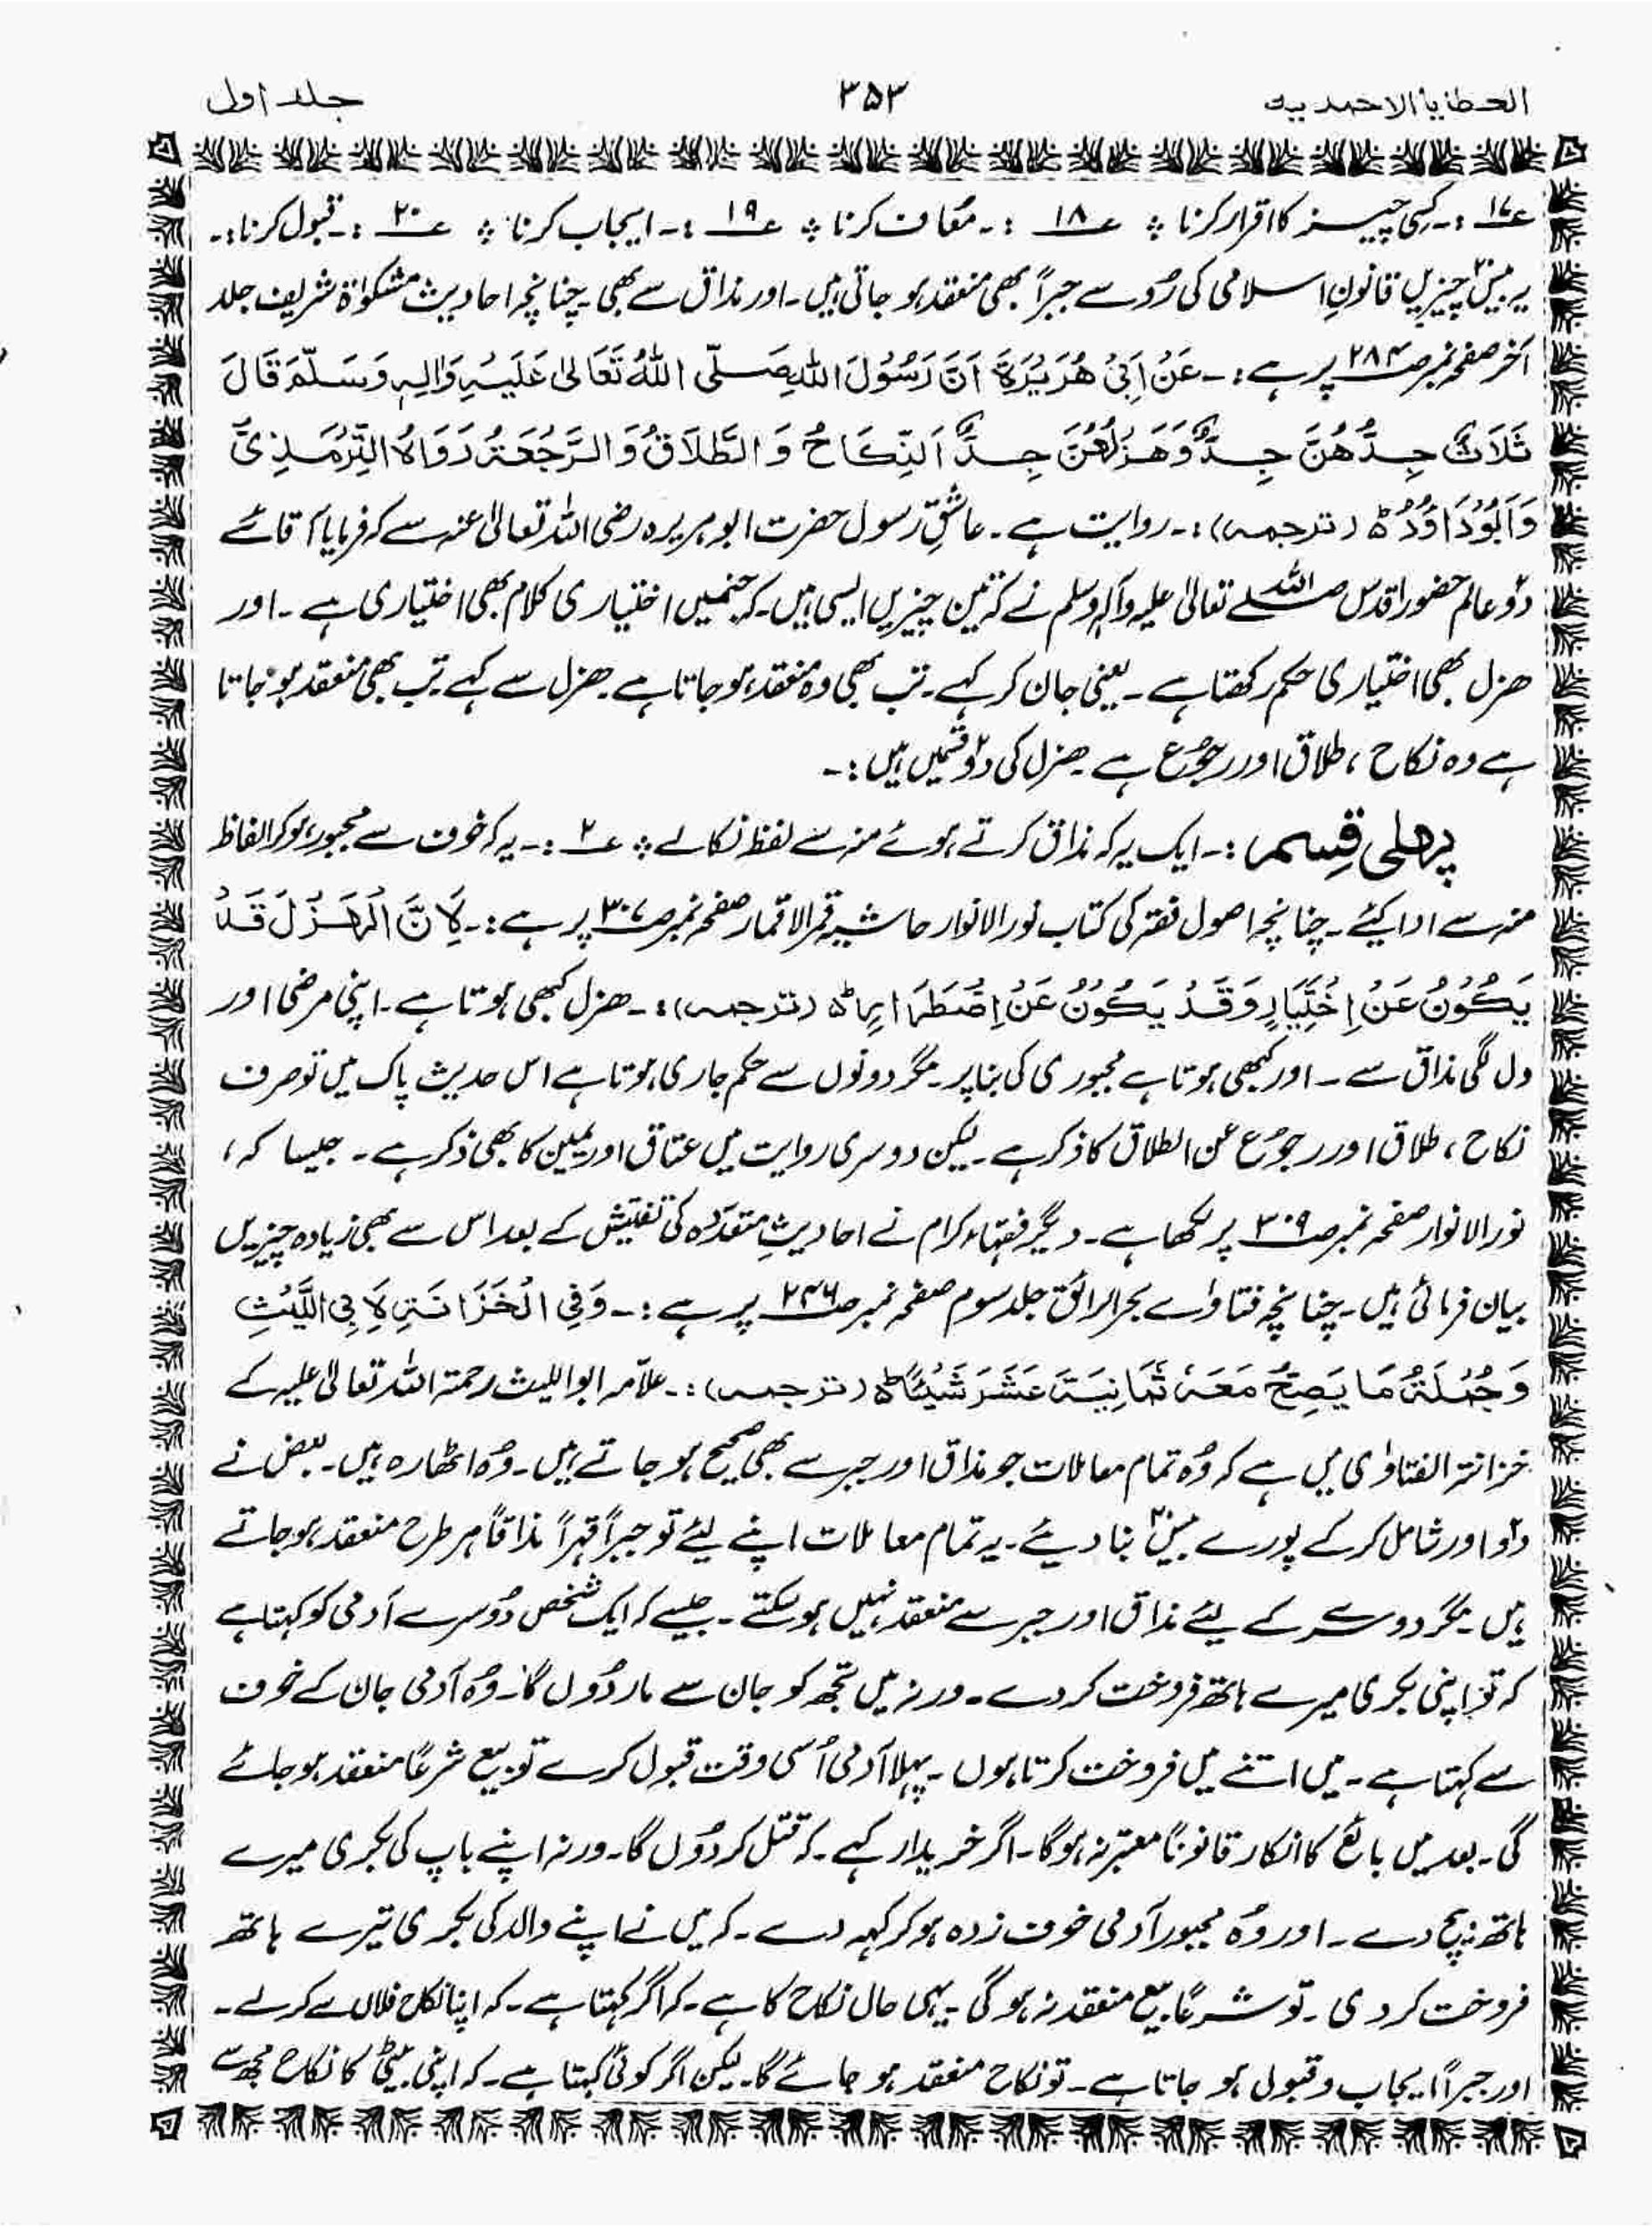 العطایا الاحمدیہ ۳۵۳ جلد اول
۱۷؎ :۔ کسی چیز کا اقرار کرنا ❖ ۱۸؎ :۔ معاف کرنا ❖ ۱۹؎ :۔ ایجاب کرنا ❖ ۲۰؎ :۔ قبول کرنا :۔
یہ بیس۲۰ چیزیں قانونِ اسلامی کی رُو سے جبراً بھی منعقد ہو جاتی ہیں۔ اور مذاق سے بھی۔ چنانچہ احادیث مشکوٰۃ شریف جلد
آخر صفحہ نمبر ص۲۸۴ پر ہے :۔ عَنْ اَبِیْ هُرَیْرَةَ اَنَّ رَسُوْلَ اللّٰهِ صَلَّی اللّٰهُ تَعَالٰی عَلَیْهِ وَاٰلِهٖ وَسَلَّمَ قَالَ
ثَلَاثٌ جِدُّهُنَّ جِدٌّ وَهَزْلُهُنَّ جِدٌّ اَلنِّکَاحُ وَ الطَّلَاقُ وَ الرَّجْعَةُ رَوَاهُ التِّرْمَذِیُّ
وَاَبُوْدَاوُدَ ط (ترجمہ) :۔ روایت ہے۔ عاشقِ رسول حضرت ابو ہریرہ رضی اللہ تعالیٰ عنہ سے کہ فرمایا آقائے
دوعالم حضور اقدس صلے اللہ تعالیٰ علیہ وآلہ وسلم نے کہ تین چیزیں ایسی ہیں۔ کہ جنمیں اختیاری کلام بھی اختیاری ہے۔ اور
ھزل بھی اختیاری حکم رکھتا ہے۔ یعنی جان کر کہے۔ تب بھی وہ منعقد ہو جاتا ہے۔ ھزل سے کہے تب بھی منعقد ہو جاتا
ہے وہ نکاح ، طلاق اور رجوُع ہے۔ ھزل کی دو۲ قسمیں ہیں :۔
پہلی قِسم :۔ ایک یہ کہ مذاق کرتے ہوئے منہ سے لفظ نکالے ❖ ۲؎ :۔ یہ کہ خوف سے مجبور ہو کر الفاظ
منہ سے ادا کیئے۔ چنانچہ اصول فقہ کی کتاب نور الانوار حاشیہ قمر الاقمار صفحہ نمبر ص۳۰۷ پر ہے :۔ لِاَنَّ الْهَزْلَ قَدْ
یَکُوْنُ عَنْ اِخْتِیَارٍ وَقَدْ یَکُوْنُ عَنْ اِضْطَرَارٍ ط (ترجمہ) :۔ ھزل کبھی ہوتا ہے۔ اپنی مرضی اور
دل لگی مذاق سے۔ اور کبھی ہوتا ہے مجبوری کی بنا پر۔ مگر دونوں سے حکم جاری ہوتا ہے اس حدیث پاک میں تو صرف
نکاح ، طلاق اور رجوُع عن الطلاق کا ذکر ہے۔ لیکن دوسری روایت میں عتاق اور یمین کا بھی ذکر ہے۔ جیسا کہ ،
نور الانوار صفحہ نمبر ص۳۰۹ پر لکھا ہے۔ دیگر فقہاء کرام نے احادیثِ متعددہ کی تفتیش کے بعد اس سے بھی زیادہ چیزیں
بیان فرمائی ہیں۔ چنانچہ فتاوٰے بحر الرائق جلد سوم صفحہ نمبر ص۲۴۶ پر ہے :۔ وَفِی الْخَزَانَةِ لِاَبِی اللَّیْثِ
وَجُمْلَةُ مَا یَصِحُّ مَعَهٗ ثَمَانِیَةَ عَشَرَ شَیْئًا ط (ترجمہ) :۔ علّامہ ابو اللیث رحمتہ اللہ تعالیٰ علیہ کے
خزانتہ الفتاوٰی میں ہے کہ وُہ تمام معاملات جو مذاق اور جبر سے بھی صحیح ہو جاتے ہیں۔ وُہ اٹھارہ ہیں۔ بعض نے
دو اور شامل کر کے پورے بیس۲۰ بنا دیئے۔ یہ تمام معاملات اپنے لیئے تو جبراً قہراً مذاقاً ہر طرح منعقد ہو جاتے
ہیں۔ مگر دوسرے کے لیئے مذاق اور جبر سے منعقد نہیں ہو سکتے۔ جیسے کہ ایک شخص دُوسرے آدمی کو کہتا ہے
کہ تو اپنی بکری میرے ہاتھ فروخت کر دے۔ ورنہ میں تجھ کو جان سے مار دُوں گا۔ وُہ آدمی جان کے خوف
سے کہتا ہے۔ میں اتنے میں فروخت کرتا ہوں۔ پہلا آدمی اُسی وقت قبول کرے تو بیع شرعًا منعقد ہو جائے
گی۔ بعد میں بائع کا انکار قانونًا معتبر نہ ہوگا۔ اگر خریدار کہے۔ کہ قتل کر دُوں گا۔ ورنہ اپنے باپ کی بکری میرے
ہاتھ بیچ دے۔ اور وُہ مجبور آدمی خوف زدہ ہو کر کہہ دے۔ کہ میں نے اپنے والد کی بکری تیرے ہاتھ
فروخت کر دی۔ تو شرعًا بیع منعقد نہ ہو گی۔ یہی حال نکاح کا ہے۔ کہ اگر کہتا ہے۔ کہ اپنا نکاح فلاں سے کر لے۔
اور جبراً ایجاب و قبول ہو جاتا ہے۔ تو نکاح منعقد ہو جائے گا۔ لیکن اگر کوئی کہتا ہے۔ کہ اپنی بیٹی کا نکاح مجھ سے